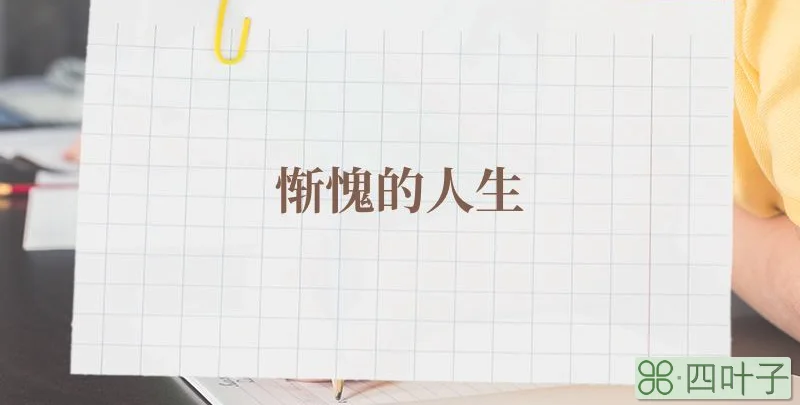 惭愧的人生
四叶子